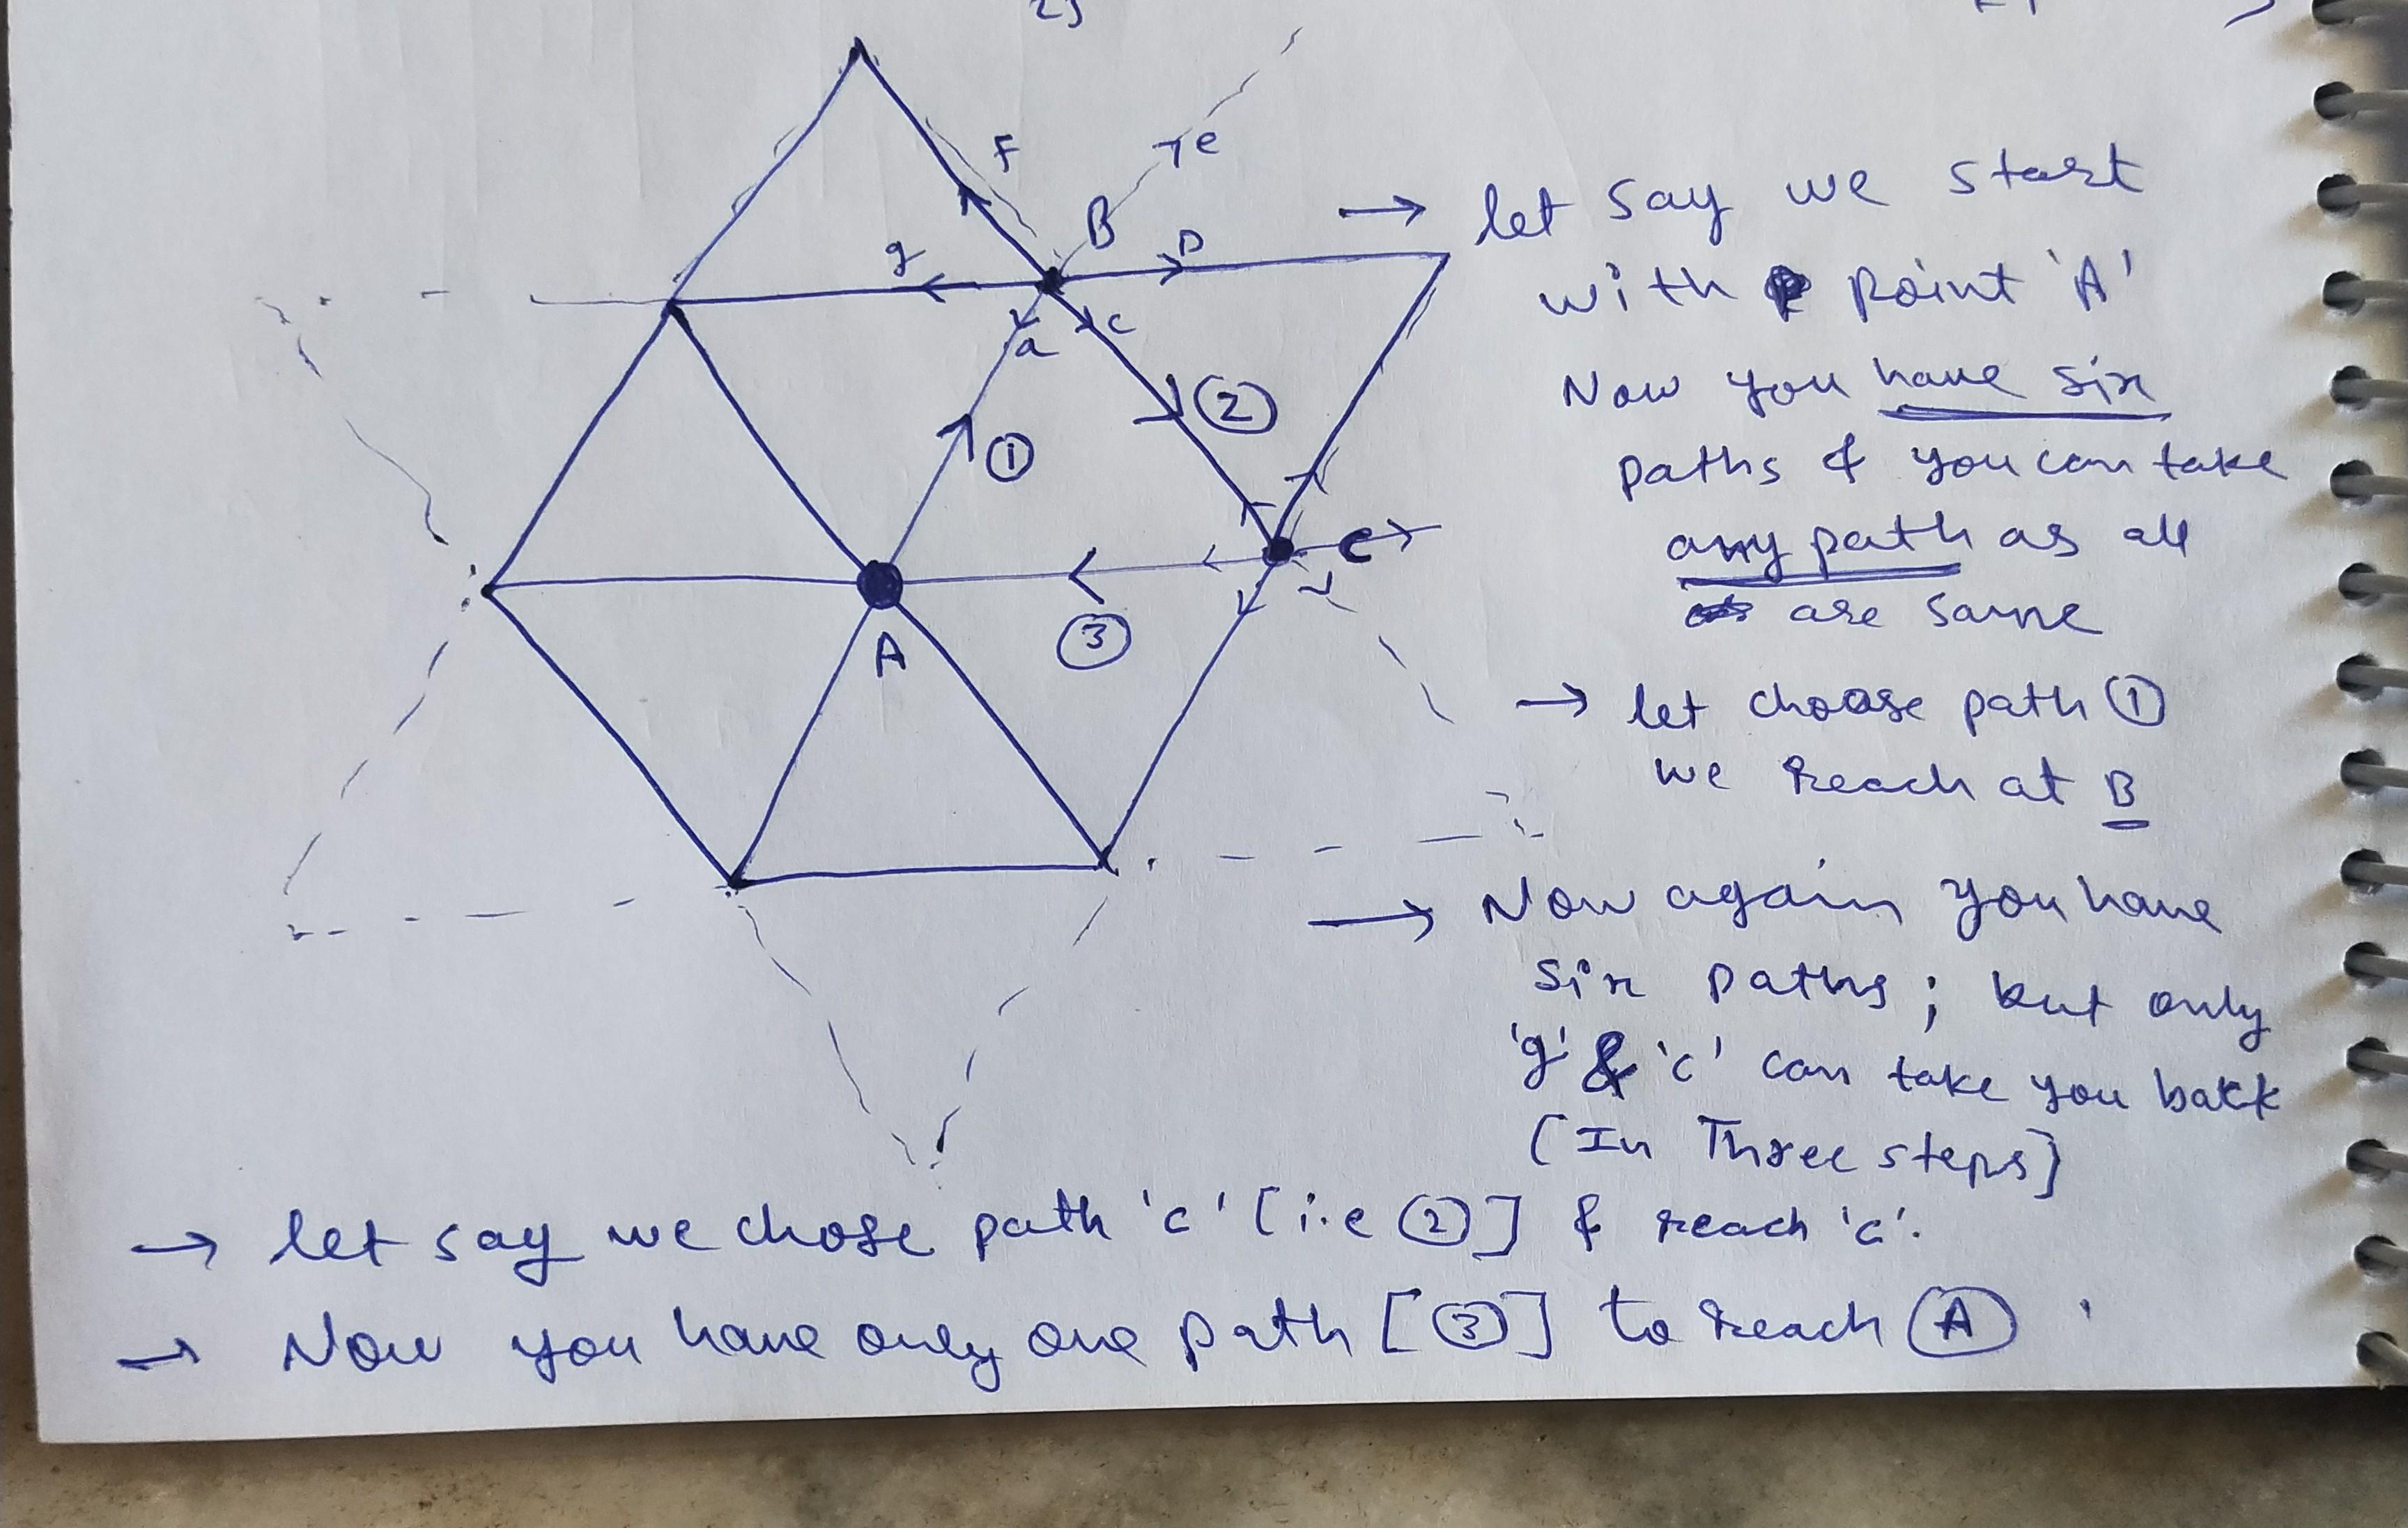 F
e
B
g
D
a
c
①
②
C
③
A
→ let say we start
with point 'A'
Now you have six
paths & you can take
any path as all
are same
→ let choose path ①
we reach at B
→ Now again you have
six paths ; but only
'g' & 'c' can take you back
[In Three steps]
→ let say we chose path 'c' [i.e ②] & reach 'c'.
→ Now you have only one path [③] to reach Ⓐ